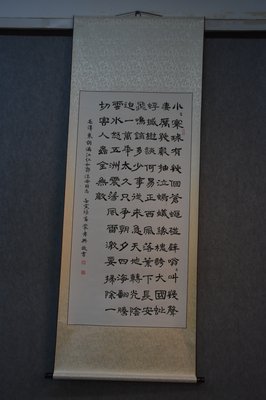 小〻寰球有幾個蒼蠅碰壁嗡〻叫幾聲
淒厲幾聲抽泣螞蟻緣槐誇大國蚍
蜉撼樹談何易正西風落葉下長安
飛鳴鏑多少事從來急天地轉光陰
迫一萬年太久只爭朝夕四海翻騰
雲水怒五洲震蕩風雷激要掃除一
切害人蟲全無敵
毛澤東詞滿江紅和郭沫若同志